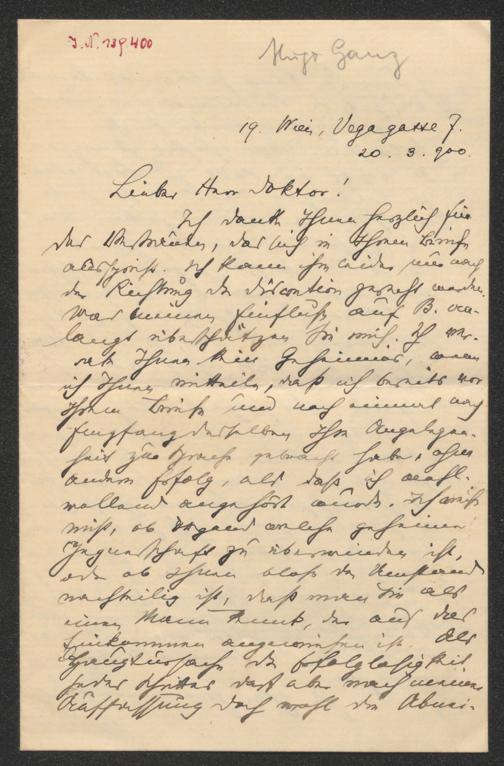 J. N. 139.400
Hugo Ganz
19. Wien, Vegagasse 7.
20. 3. 900.
Lieber Herr Doktor!
Ich danke Ihnen herzlich für
das Vertrauen, das sich in Ihrem Briefe
ausspricht. Ich kann ihm leider nur nach
der Richtung der Discretion gerecht werden.
Was meinen Einfluß auf B. an-
langt überschätzen Sie mich. Ich ver-
rate Ihnen kein Geheimnis, wenn
ich Ihnen mitteile, daß ich bereits vor
Ihrem Briefe und noch einmal nach
Empfang desselben Ihre Angelegen-
heit zur Sprache gebracht habe, ohne
andern Erfolg, als daß ich wohl-
wollend angehört wurde. Ich weiß
nicht, ob irgend welche geheime
Gegnerschaft zu überwinden ist,
oder ob Ihnen blos der Umstand
nachteilig ist, daß man Sie als
einen Mann kennt, der auf das
Einkommen angewiesen ist. Als
Hauptursache der Erfolglosigkeit
jedes Schrittes darf aber nach meiner
Auffassung doch wohl die Abnei-